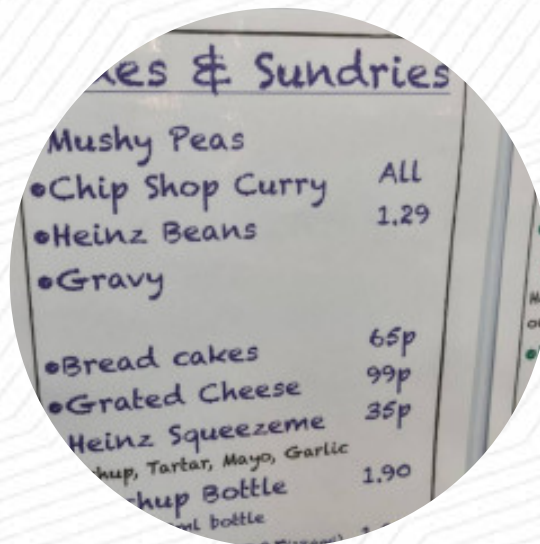 & Sundries
Mushy Peas
•Chip Shop Curry All
•Heinz Beans 1.29
•Gravy
•Bread cakes 65p
•Grated Cheese 99p
Heinz Squeezeme 35p
Tartar, Mayo, Garlic
Bottle 1.90
bottle